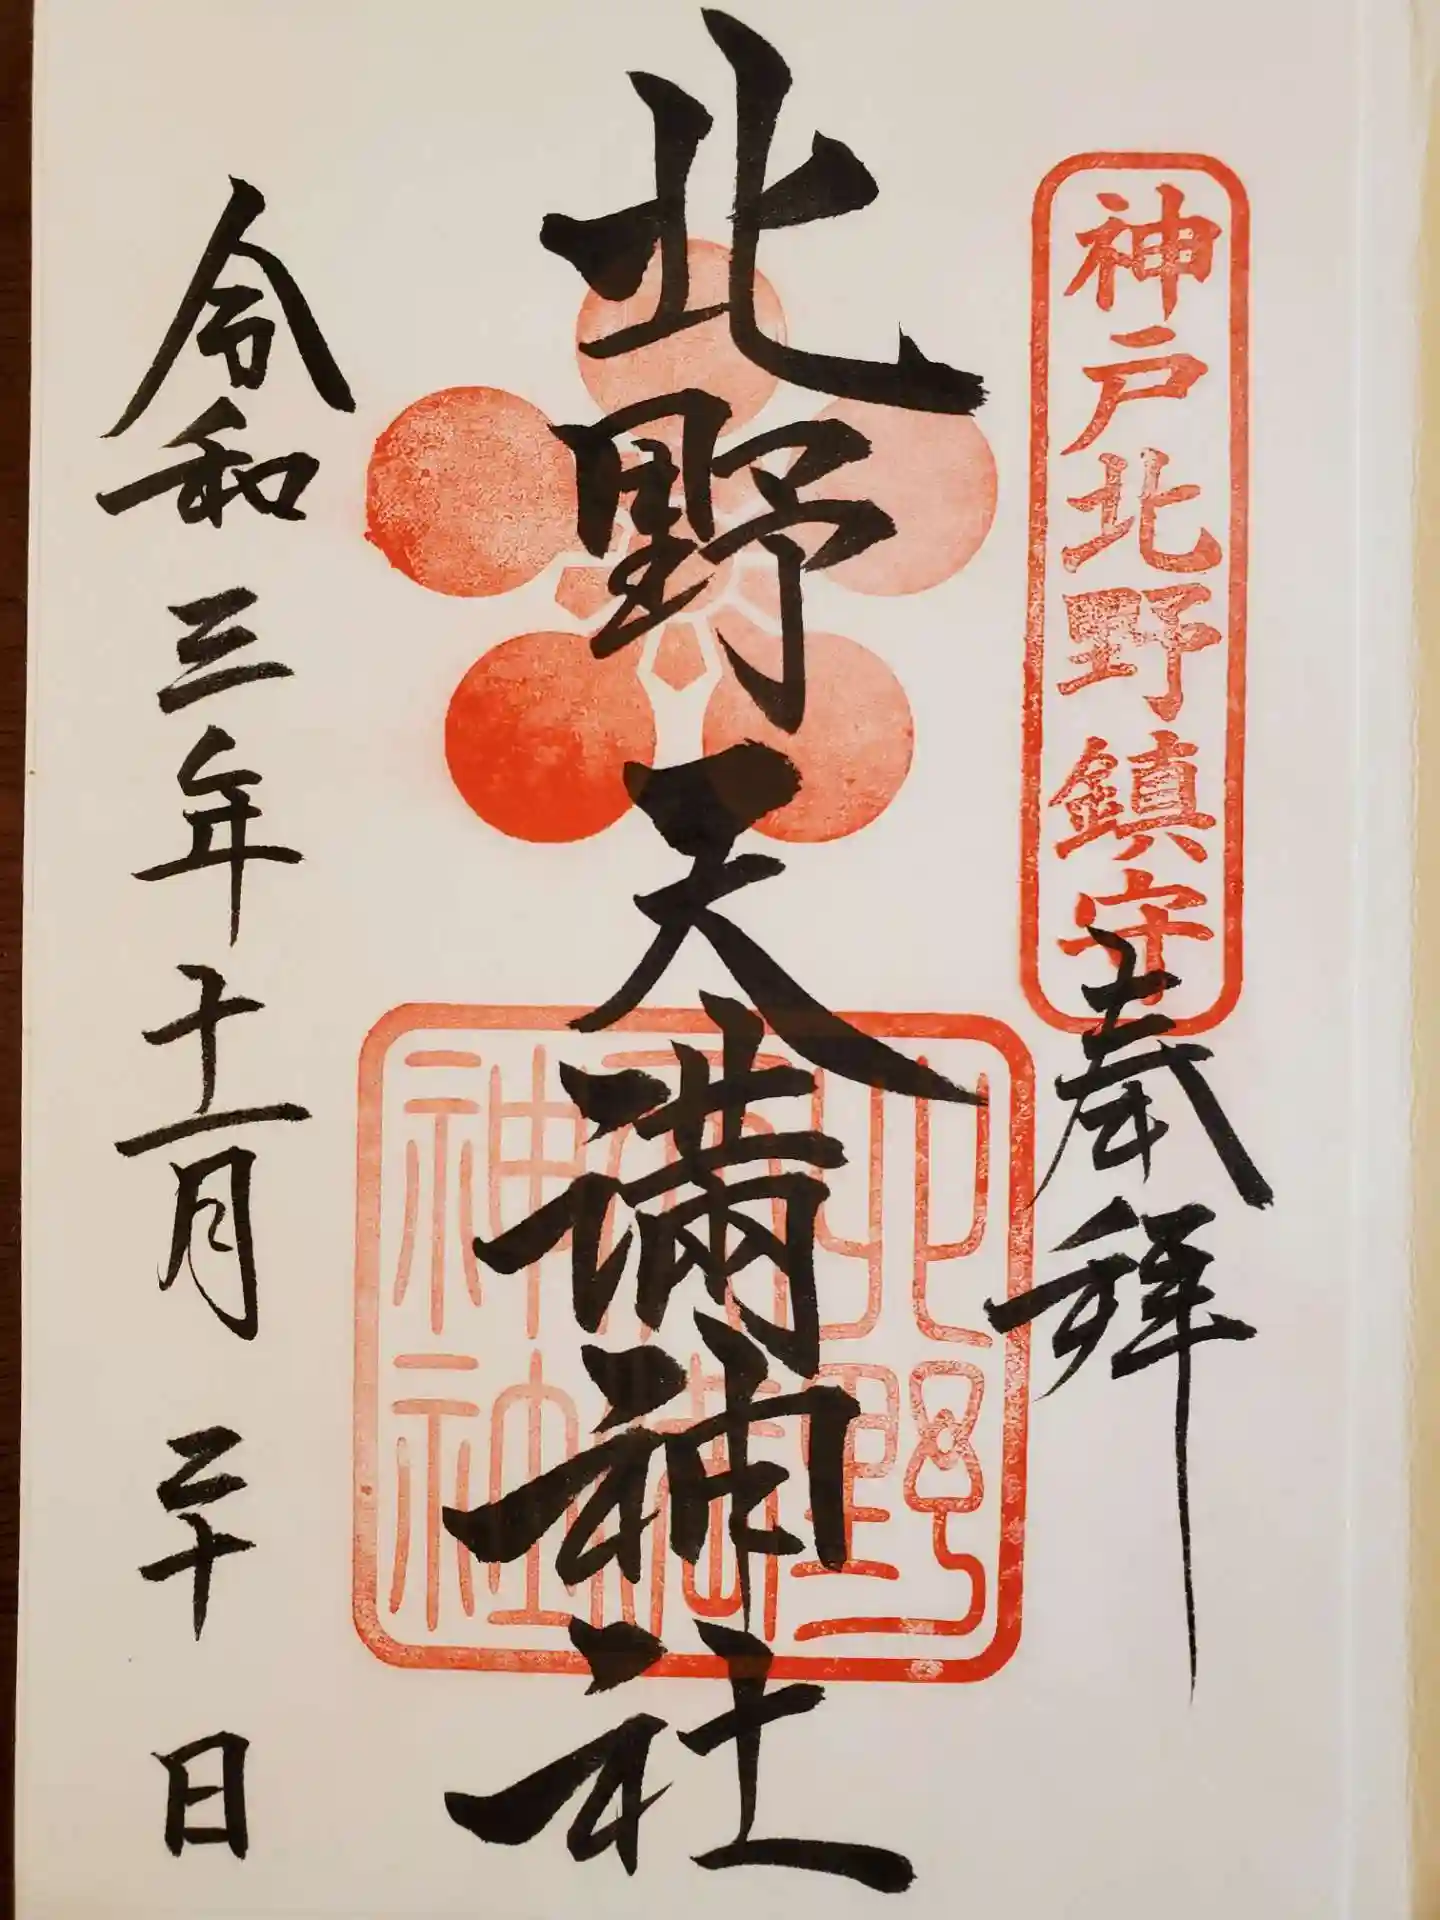 神戸北野鎮守
奉拝
北野天満神社
北野
天満
神社
令和三年十一月二十日